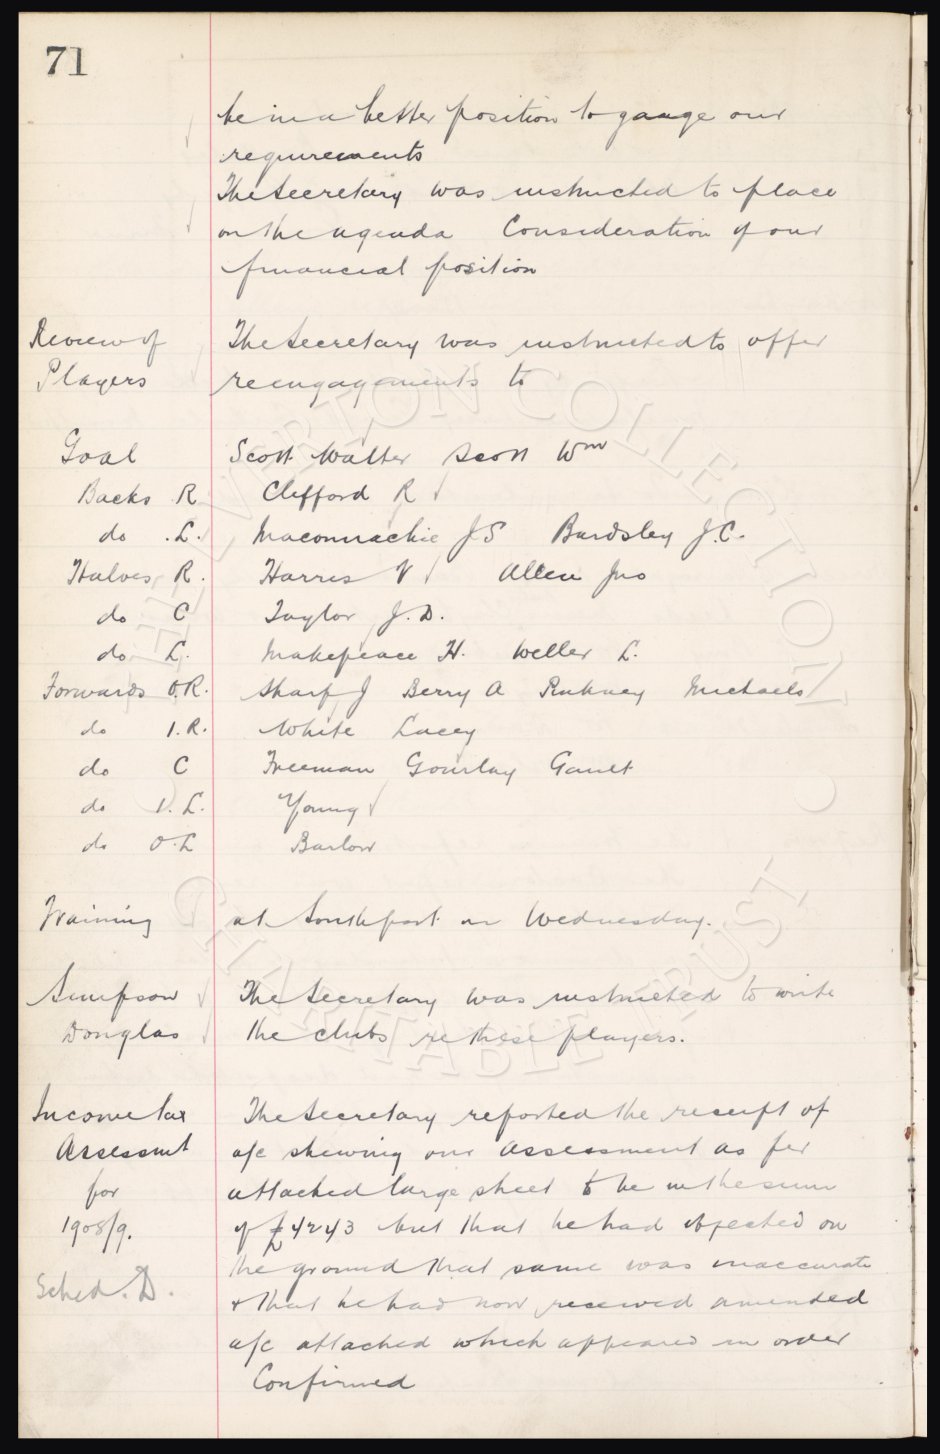 71
be in a better position to gauge our
requirements
The Secretary was instructed to place
on the agenda Consideration of our
financial position
Review of The Secretary was instructed to offer
Players reengagements to
Goal Scott Walter Scott Wm
Backs R Clifford R
do .L. Maconnachie J S Bardsley J.C.
Halves R. Harris V Allen Jno
do C Taylor J. D.
do L. Makepeace H. Weller L.
Forwards O.R. Sharp J Berry A Rafferty Michaels
do I.R. White Lacey
do C Freeman Gourlay Gault
do I.L. Young
do O.L Barlow
Training at Southport on Wednesday.
Simpson The Secretary was instructed to write
Douglas the clubs re these players.
Income tax The Secretary reported the receipt of
Assessmt a/c shewing our Assessment as per
for attached large sheet to be in the sum
1908/9. of £4243 but that he had objected on
Sched. D. the ground that same was inaccurate
& that he had now received amended
a/c attached which appeared in order
Confirmed
THE EVERTON COLLECTION CHARITABLE TRUST